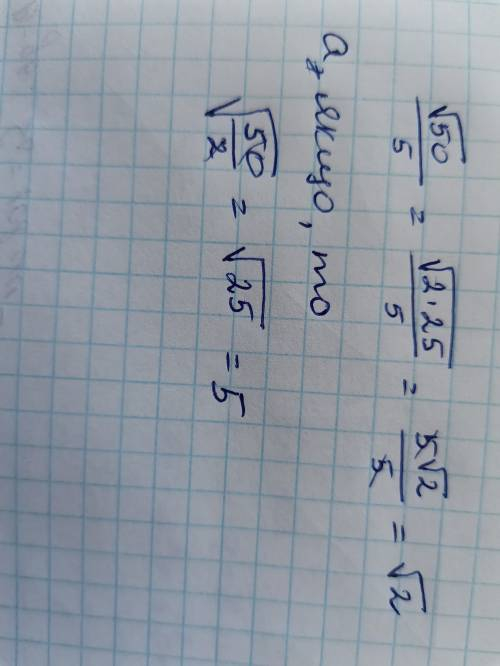 √50/5 = √2·25/5 = 5√2/5 = √2
а, якщо, то
√50/2 = √25 = 5